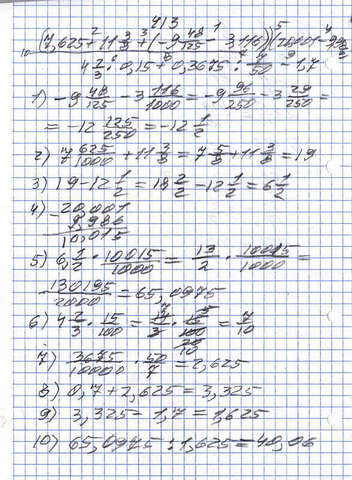 413
(7,625 + 11 3/8 + (-9 48/125 - 3,116))(20,001 - 9,986)
4 2/3 · 0,15 + 0,3675 : 7/50 - 1,7
1) -9 48/125 - 3 116/1000 = -9 96/250 - 3 29/250 =
= -12 125/250 = -12 1/2
2) 7 625/1000 + 11 3/8 = 7 5/8 + 11 3/8 = 19
3) 19 - 12 1/2 = 18 2/2 - 12 1/2 = 6 1/2
4) 20,001
9,986
10,015
5) 6 1/2 · 10015/1000 = 13/2 · 10015/1000 =
130195/2000 = 65,0975
6) 4 2/3 · 15/100 = 14/3 · 15/100 = 7/10
7) 3675/10000 · 50/7 = 2,625
8) 0,7 + 2,625 = 3,325
9) 3,325 - 1,7 = 1,625
10) 65,0975 : 1,625 = 40,06